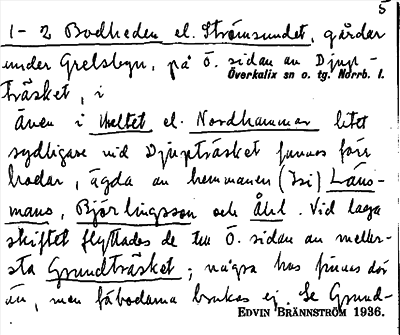 5
1-2 Bodheden el. Strömsundet, gårdar
under Grelsbyn, på Ö. sidan av Djup-
Överkalix sn o. tg. Norrb. l.
träsket, i
även i el. Nordhammar litet
sydligare vid Djupträsket funnos före
bodar, ägda av hemmanen (Isi) Läns-
mans, Björlingsson och Åhl. Vid laga
skiftet flyttades de till Ö. sidan av meller-
sta Grundträsket; några hus finnas där
än, men fäbodarna brukas ej. Se Grund-
EDVIN BRÄNNSTRÖM 1936.